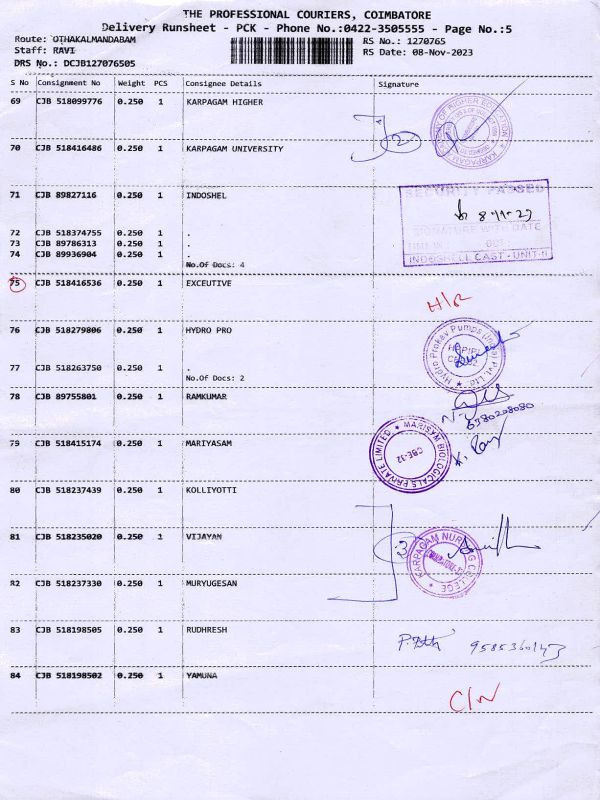 THE PROFESSIONAL COURIERS, COIMBATORE
Delivery Runsheet - PCK - Phone No.:0422-3505555 - Page No.:5
Route: OTHAKALMANDABAM
RS No.: 1270765
Staff: RAVI
RS Date: 08-Nov-2023
DRS No.: DCJB127076505
S No Consignment No Weight PCS Consignee Details Signature
69 CJB 518099776 0.250 1 KARPAGAM HIGHER
2
70 CJB 518416486 0.250 1 KARPAGAM UNIVERSITY
71 CJB 89827116 0.250 1 INDOSHEL
SECURITY PASSED
8-11-23
SIGNATURE WITH DATE
INDOSHELL CAST - UNIT-II
72 CJB 518374755 0.250 1 .
73 CJB 89786313 0.250 1 .
74 CJB 89936904 0.250 1 .
No.Of Docs: 4
75 CJB 518416536 0.250 1 EXCEUTIVE
76 CJB 518279806 0.250 1 HYDRO PRO
Hydro Prokav Pumps (India) Pvt. Ltd.
77 CJB 518263750 0.250 1 .
No.Of Docs: 2
78 CJB 89755801 0.250 1 RAMKUMAR
79 CJB 518415174 0.250 1 MARIYASAM
BIOLOGICALS PRIVATE LIMITED
CBE-32
80 CJB 518237439 0.250 1 KOLLIYOTTI
81 CJB 518235020 0.250 1 VIJAYAN
3
KARPAGAM NURSING COLLEGE
82 CJB 518237330 0.250 1 MURYUGESAN
83 CJB 518198505 0.250 1 RUDHRESH
84 CJB 518198502 0.250 1 YAMUNA